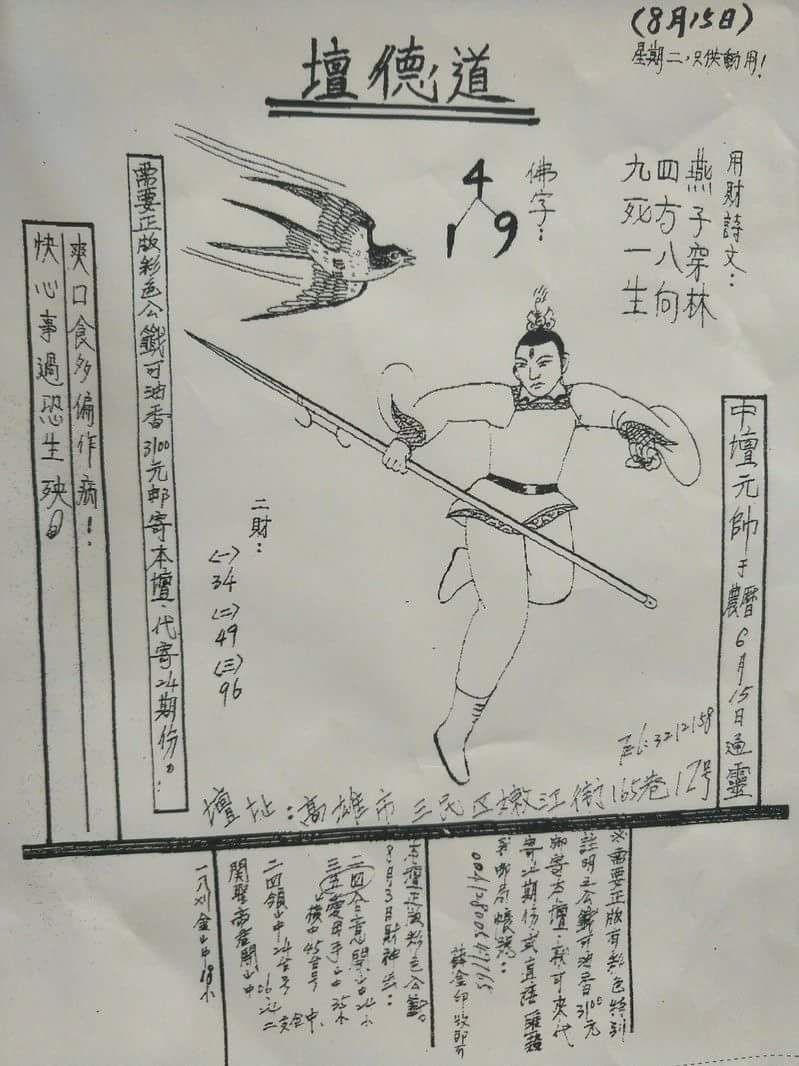 (8月15日)
星期二，只供動用！
道德壇
用財詩文：
燕子穿林
四方八向
九死一生
佛字：
4
1 9
需要正版彩色公籤可油香3100元郵寄本壇，代寄24期份。
爽口食多偏作病！
快心事過恐生殃
二財：
(一)
34
(二)
49
(三)
96
中壇元帥于農曆6月15日通靈
TEL:3212158
壇址：高雄市三民区嫩江街165巷12号
需要正版有彩色特別
註明之公籤可油香3100元
郵寄本壇，我可來代
寄24期份
郵局帳號：
本壇正版彩色公籤
8月3日財神法：
二四合意開出24
三五愛母手出35
橫中45台号
二四領出中24台号
關聖帝君開出中